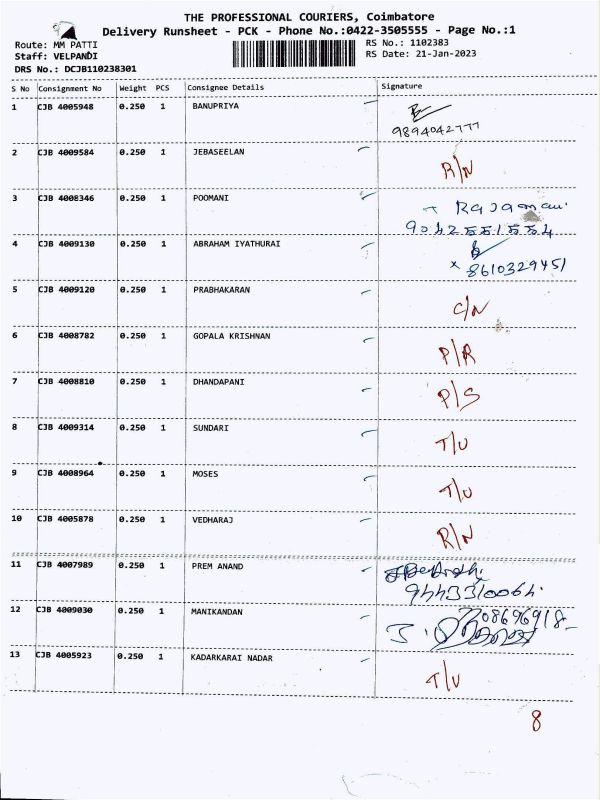 THE PROFESSIONAL COURIERS, Coimbatore
Delivery Runsheet - PCK - Phone No.:0422-3505555 - Page No.:1
Route: MM PATTI
RS No.: 1102383
Staff: VELPANDI
RS Date: 21-Jan-2023
DRS No.: DCJB110238301
S No Consignment No Weight PCS Consignee Details Signature
1 CJB 4005948 0.250 1 BANUPRIYA
9894042777
2 CJB 4009584 0.250 1 JEBASEELAN R/N
3 CJB 4008346 0.250 1 POOMANI
4 CJB 4009130 0.250 1 ABRAHAM IYATHURAI
8610329451
5 CJB 4009120 0.250 1 PRABHAKARAN C/N
6 CJB 4008782 0.250 1 GOPALA KRISHNAN P/R
7 CJB 4008810 0.250 1 DHANDAPANI P/S
8 CJB 4009314 0.250 1 SUNDARI T/U
9 CJB 4008964 0.250 1 MOSES T/U
10 CJB 4005878 0.250 1 VEDHARAJ R/N
11 CJB 4007989 0.250 1 PREM ANAND
9443310064
12 CJB 4009030 0.250 1 MANIKANDAN
13 CJB 4005923 0.250 1 KADARKARAI NADAR T/U
8